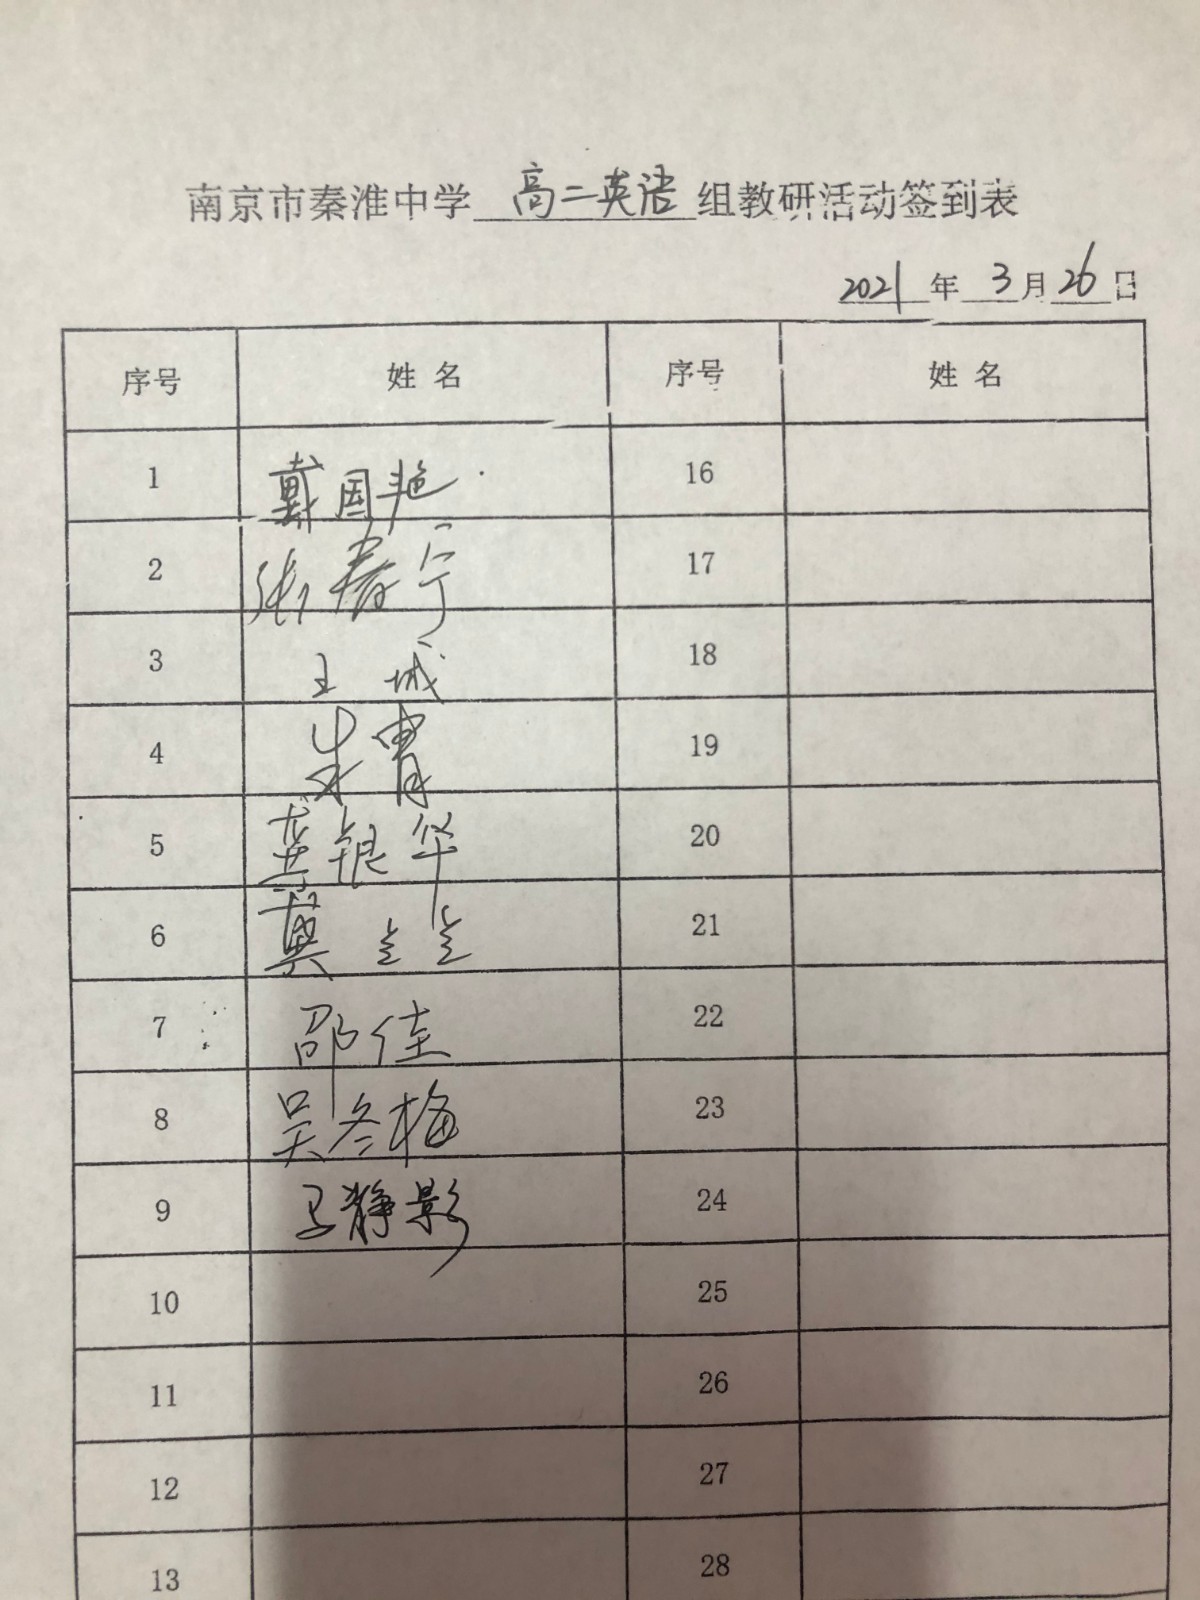 南京市秦淮中学 高二英语 组教研活动签到表
2021 年 3 月 26 日
序号 姓名 序号 姓名
1 戴国艳 16
2 张春宁 17
3 王城 18
4 朱胄 19
5 龚银华 20
6 冀 21
7 邵佳 22
8 吴冬梅 23
9 马静影 24
10 25
11 26
12 27
13 28